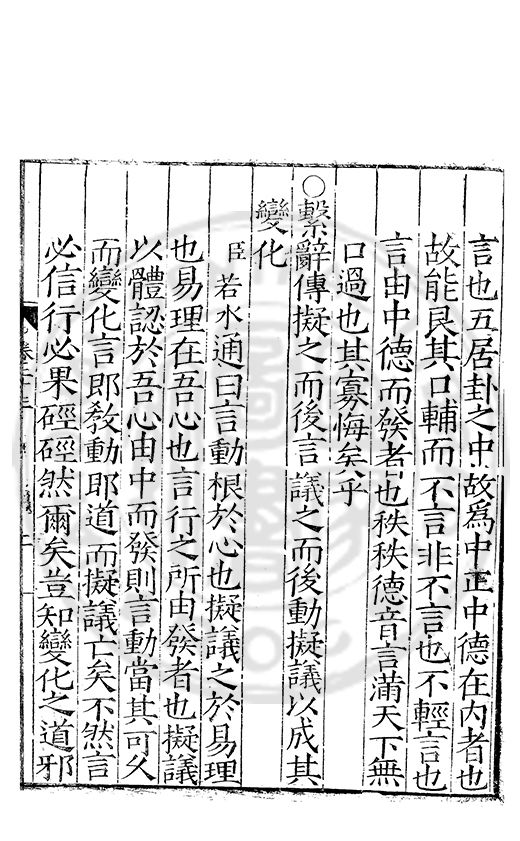 言也五居卦之中故為中正中德在内者也
故能艮其口輔而不言非不言也不輕言也
言由中德而發者也秩秩德音言滿天下無
口過也其寡悔矣乎
○繫辭傳擬之而後言議之而後動擬議以成其
變化
臣若水通曰言動根於心也擬議之於易理
也易理在吾心也言行之所由發者也擬議
以體認於吾心由中而發則言動當其可久
而變化言即教動即道而擬議亡矣不然言
必信行必果硜硜然爾矣豈知變化之道邪